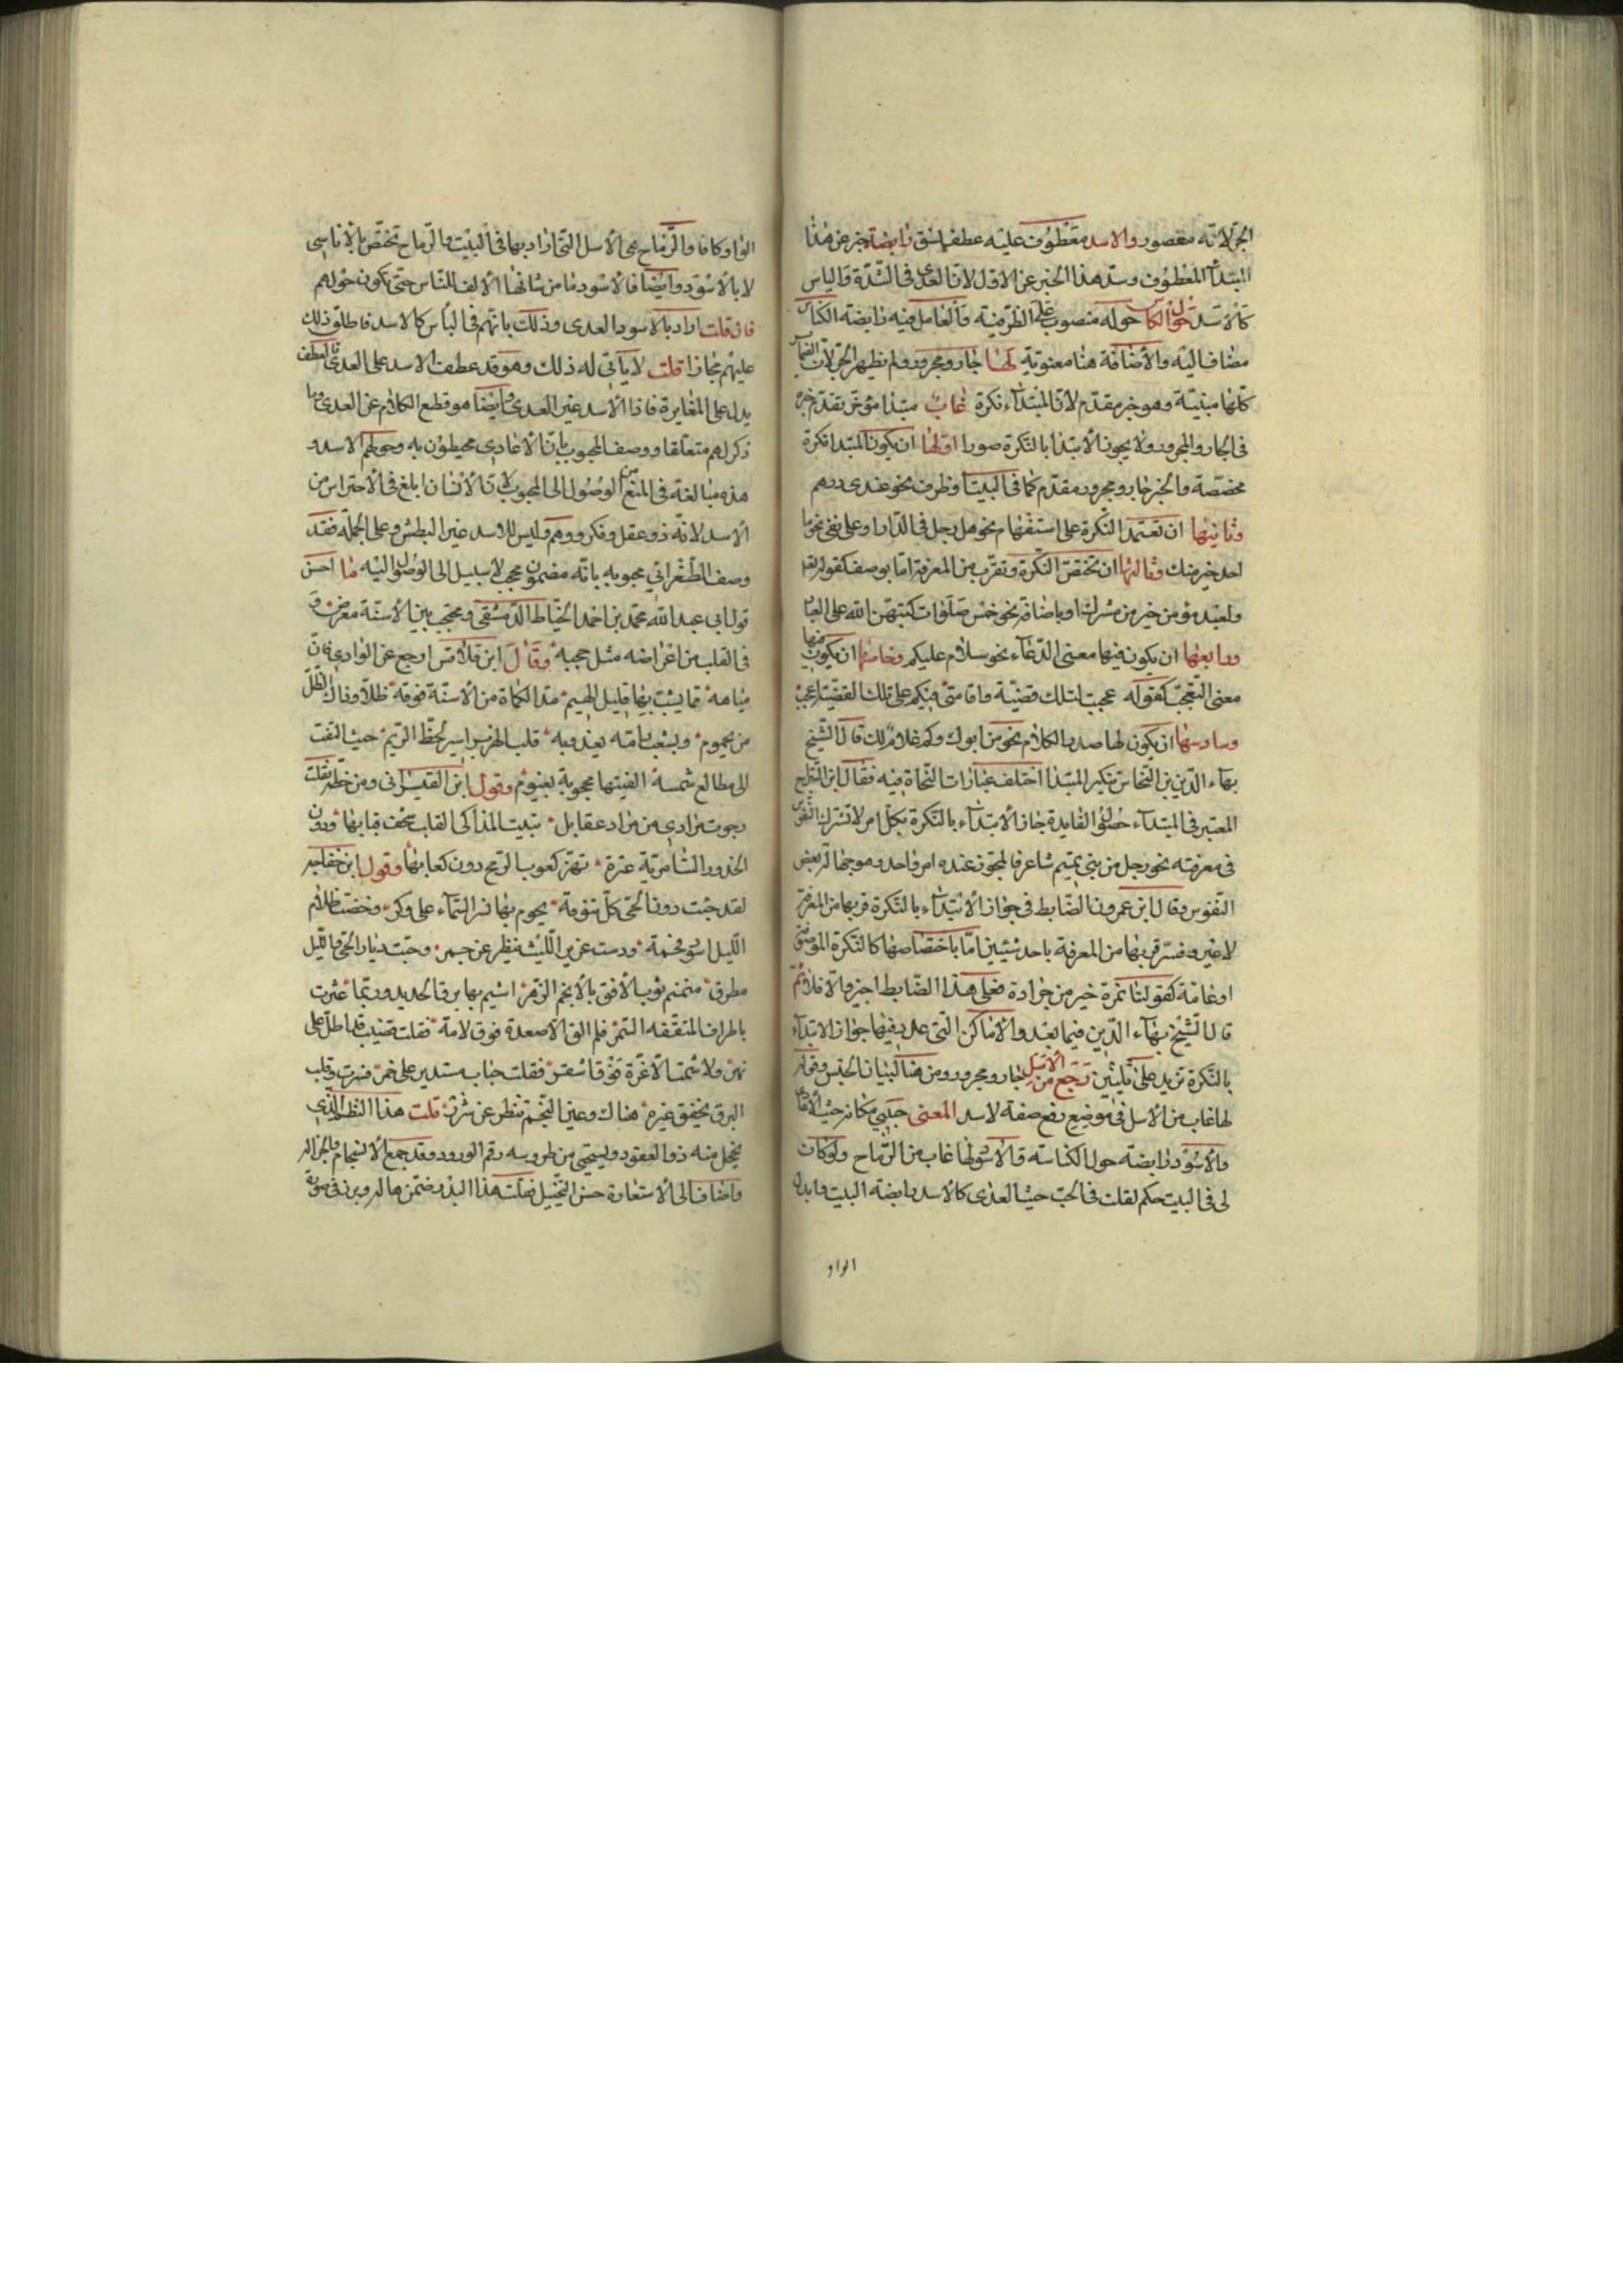 الجر لانه مقصور والاسد معطوف عليه عطف نسق رابضة خبر عن هذا
المبتدأ المعطوف وسد هذا الخبر عن الاول لان العدى فى الشدة والباس
كالاسد حول الكناس حوله منصوب على الظرفية والعامل فيه رابضة الكناس
مضاف اليه والاضافة هنا معنوية لها جار ومجرور ولم يظهر الجر لان الضماير
كلها مبنية وهو خبر مقدم لان المبتداء نكرة غاب مبتدا مؤخر تقدم خبره
فى الجار والمجرور ولا يجوز الابتدا بالنكرة صورا اولها ان يكون المبتدا نكرة
مخصصة والخبر جار ومجرور مقدم كما فى البيت او ظرف نحو عندى درهم
وثانيتها ان تعتمد النكرة على استفهام نحو هل رجل فى الدار او على نفى نحو ما
احد خير منك وثالثها ان تختص النكرة وتقرب من المعرفة اما بوصف كقوله تعا
ولعبد مؤمن خير من مشرك او باضافة نحو خمس صلوات كتبهن الله على العباد
ورابعها ان يكون فيها معنى الدعاء نحو سلام عليكم وخامسها ان يكون فيها
معنى التعجب كقوله عجبت لتلك قضية واقامتى فيكم على تلك القضية اعجب
وسادسها ان يكون لها صدر الكلام نحو من ابوك وكم غلام لك قال الشيخ
بهاء الدين بن النحاس تنكير المبتدا اختلف عبارات النحاة فيه فقال ابن السراج
المعتبر فى المبتداء حصول الفايدة جاز الابتداء بالنكرة بكل امر لا تشترك النفوس
فى معرفته نحو رجل من بنى تميم شاعر فالمجوز عنده امر واحد وهو جهالة بعض
النفوس وقال ابن عمرون الضابط فى جواز الابتداء بالنكرة قربها من المعرفة
لا غير وفسر قربها من المعرفة باحد شيئين اما باختصاصها كالنكرة الموصوفة
او عامة كقولنا تمرة خير من جرادة فعلى هذا الضابط اجيز والا فلا ثم
قال الشيخ بهاء الدين فيما بعد والاماكن التى عد فيها جواز الابتداء
بالنكرة تزيد على ثلثين تجع من الاسل جار ومجرور ومن هنا لبيان الجنس وقوله
لها غاب من الاسل فى موضع رفع صفة لاسد المعنى حبيبى مكانه حيث الاعادى
والاسود رابضة حول الكناسة والاسود لها غاب من الرماح ولو كان
لى فى البيت حكم لقلت فالحب حيث العدى كالاسد رابضة البيت وابدل
الواو
الواو كافا والرماح هى الاسل التى اراد بها فى البيت والرماح تختص بالاناسى
لا بالاسود وايضا فالاسود ما من شانها الالف للناس حتى تكون حولهم
فان قلت اراد بالاسود العدى وذلك بانهم فى الباس كالاسد فاطلق ذلك
عليهم مجازا قلت لا يأتى له ذلك وهو قد عطف الاسد على العدى والعطف
يدل على المغايرة فاذا الاسد غير العدى وايضا هو قطع الكلام عن العدى وما
ذكر لهم متعلقا ووصف المحبوب بان الاعادى محيطون به وحولهم الاسد و
هذه مبالغة فى المنع من الوصول الى المحبوب لان الانسان ابلغ فى الاحتراس من
الاسد لانه ذو عقل وفكر ووهم وليس للاسد غير البطش وعلى الجملة فقد
وصف الطغرائي محبوبه بانه مضمون محجب لا سبيل الى الوصول اليه ما احسن
قول ابى عبد الله محمد بن احمد الخياط الدمشقى ومحتجب بين الاسنة معرض و
فى القلب من اعراضه مثل حجبه وقال ابن قلاقس ارجع عن الوادى فان
مياهه مما يشب بها قليل الهيم مد الكماة من الاسنة فوقه ظلا وذاك الظل
من يحموم وبشعب رامته يعذ وبه قلب الهزبر اسير لحظ الريم حيث التفت
الى مطالع شمسه الفيتها محجوبة بغيوم وقول ابن القيسرانى ومن خطه نقلت
الخدور الشامرية عزة تهز كعوب الرمح دون كعابها وقول ابن خفاجه
لقد جئت دون الحى كل تنوفة يحوم بها نسر السماء على وكر وخضت ظلام
الليل اسود فحمة ودست عرين الليث ينظر عن جمر وجئت ديار الحى والليل
مطرق منمنم ثوب الافق بالانجم الزهر اشيم بها برق الحديد وربما عثرت
باطراف المثقفه السمر فلم الق الا صعدة فوق لامة فقلت قضيب قد اطل على
نهر ولا شمت الا غرة فوق اشقر فقلت حباب يستدير على خمر فسرت وقلب
البرق يخفق غيرة هناك وعين النجم تنظر عن شزر قلت هذا النظم الذى
يخجل منه ذوا العقود ويستحى من طروسه رقم الورود وقد جمع الانسجام والجزاله
واضاف الى الاستعارة حسن التخيل